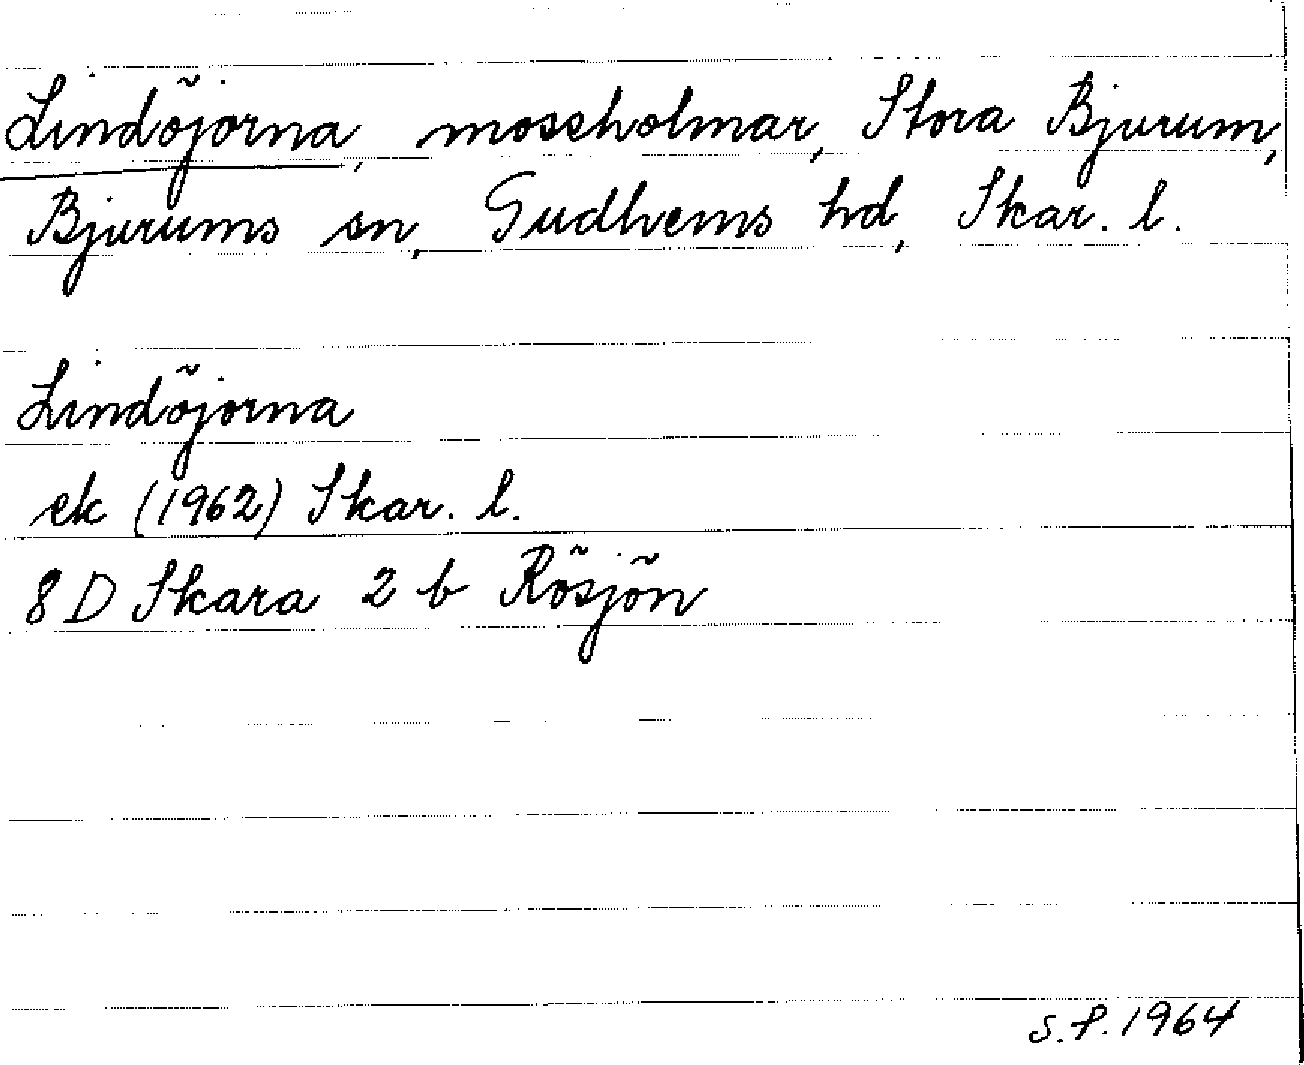 Lindöjorna, mossholmar, Stora Bjurum,
Bjurums sn, Gudhems hd, Skar. l.
Lindöjorna
ek (1962) Skar. l.
8 D Skara 2 b Rösjön
S.F. 1964